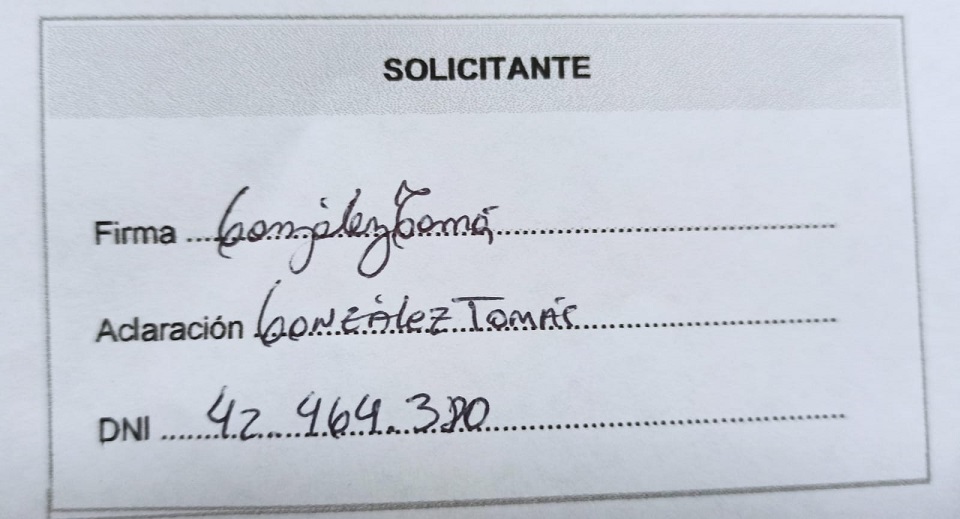 SOLICITANTE
Firma González Tomás
Aclaración González Tomás
DNI 42.464.380